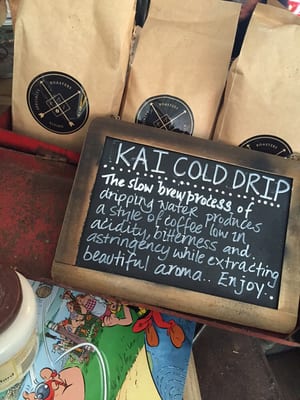 KAI COLD DRIP
The slow brew process of
dripping water produces
a style of coffee low in
acidity, bitterness and
astringency while extracting
beautiful aroma.. Enjoy.
ROASTERS
ROASTERS